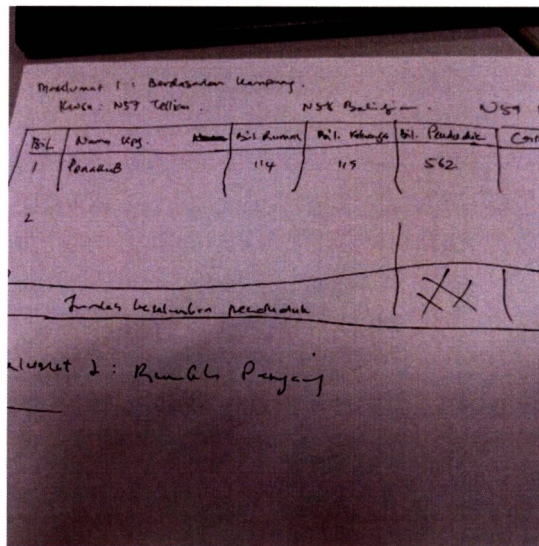 Maklumat 1 : Berdasarkan Kampung.
Kwsn : N57 Tellian . N58 Balingian . N59
Bil. Nama Kpg. Bil. Rumah Bil. Keluarga Bil. Penduduk
1 Penakub 114 115 562
2
Jumlah keseluruhan penduduk XX
2 : Rumah Panjang